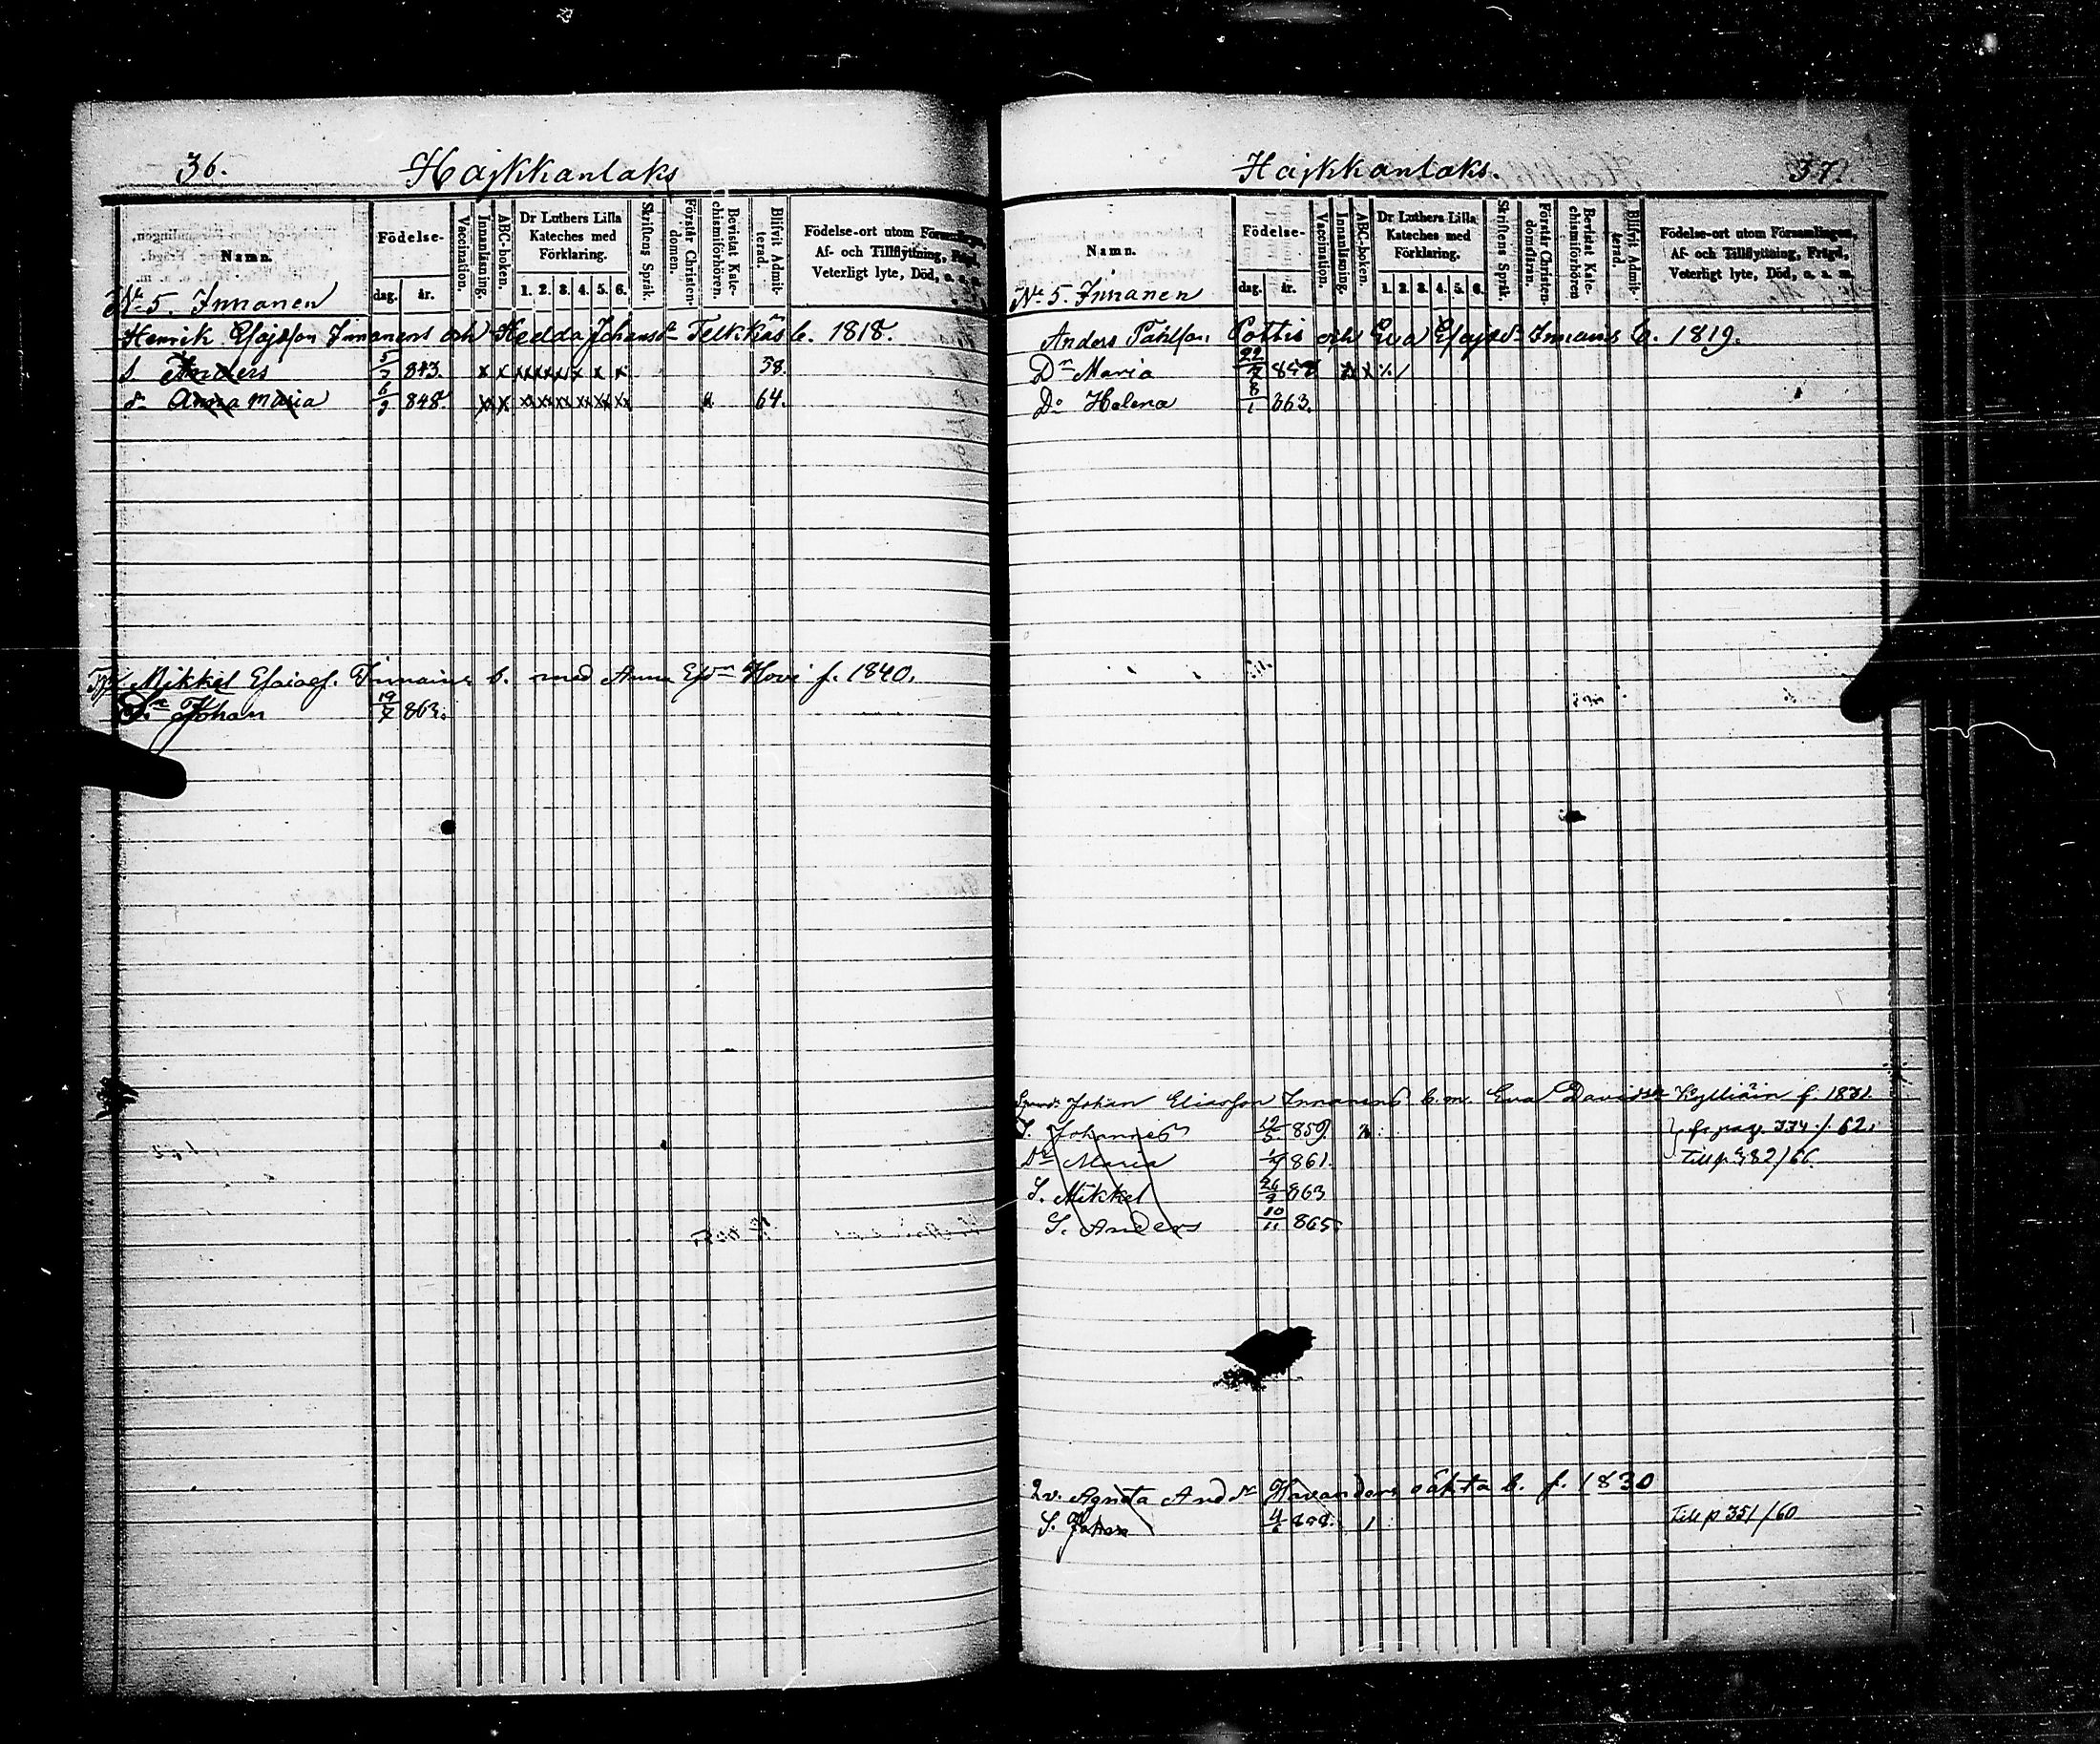 36. Hajkkanlaks
Namn.
Födelse-
dag. år.
Vaccination.
Innanläsning.
ABC-boken.
Dr Luthers Lilla Kateches med Förklaring.
1. 2. 3. 4. 5. 6.
Skriftens Språk.
Förstår Christen-domen.
Bevistat Kate-chismiförhören.
Blifvit Admit-terad.
Födelse-ort utom Församlingen,
Af- och Tillflyttning, Frägd,
Veterligt lyte, Död, o. s. m.
No 5. Innanen
Henrik Esajsson Innanens och Hedda Johansdr Telkkäs b. 1818.
S. Anders 5/7 843. x x x x x x x x 58.
dr Anna Maria 6/9 848. x x x x x x x x 64.
Mikkel Esaiaes. Innains b. med Anna Esdr Hovi f. 1840.
S. Johan 19/7 863.
Hajkkanlaks. 37.
Namn.
Födelse-
dag. år.
Vaccination.
Innanläsning.
ABC-boken.
Dr Luthers Lilla Kateches med Förklaring.
1. 2. 3. 4. 5. 6.
Skriftens Språk.
Förstår Christen-domsläran.
Bevistat Kate-chismiförhören
Blifvit Admit-terad.
Födelse-ort utom Församlingen,
Af- och Tillflyttning, Frägd,
Veterligt lyte, Död, o. s. m.
No 5. Innanen
Anders Påhlson Pottis och Eva Esajsdr Innans b. 1819.
Dr Maria 22/7
Do Helena 8/1 863.
Johan Eliasson Innanens b. m. Eva Davidsdr Kylliäin f. 1831.
S. Johannes 12/5 859. fr pag. 334/62.
Dr Maria 861. Till p 382/66.
S. Mikkel 26/9 863
S. Anders 10/11 865
Qv. Agneta Anddr Havanders oäkta b. f. 1830
S. Johan 4/6 Till p 351/60